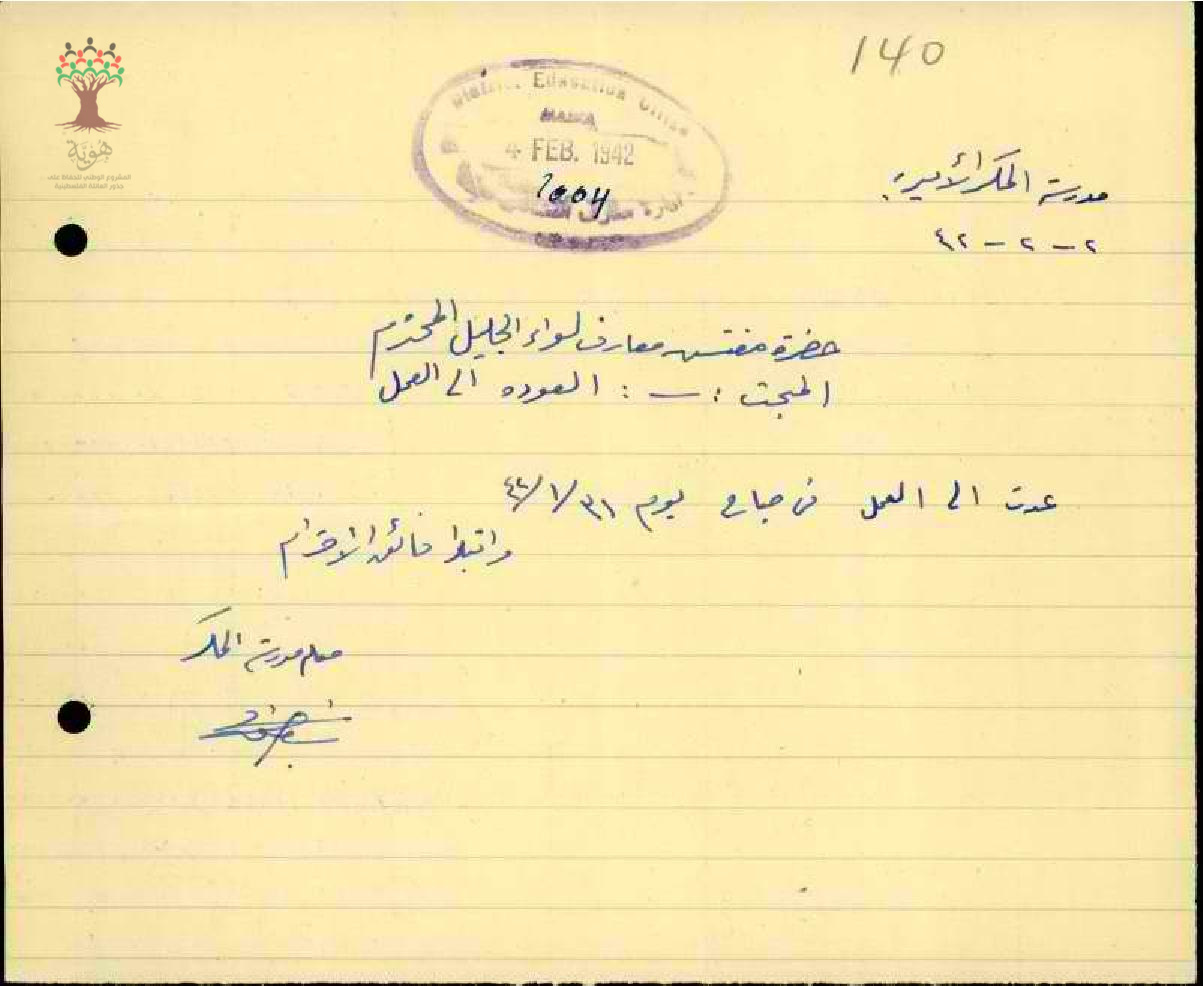 140
هوية
المشروع الوطني للحفاظ على
جذور العائلة الفلسطينية
District Education Office
HAIFA
4 FEB. 1942
1004
مدرسة المكر الأميرية
٢ - ٢ - ٤٢
حضرة مفتش معارف لواء الجليل المحترم
المبحث : — : العوده الى العمل
عدت الى العمل في صباح يوم ٣١/١/٤٢
واقبلوا فائق الاحترام
معلم مدرسة المكر